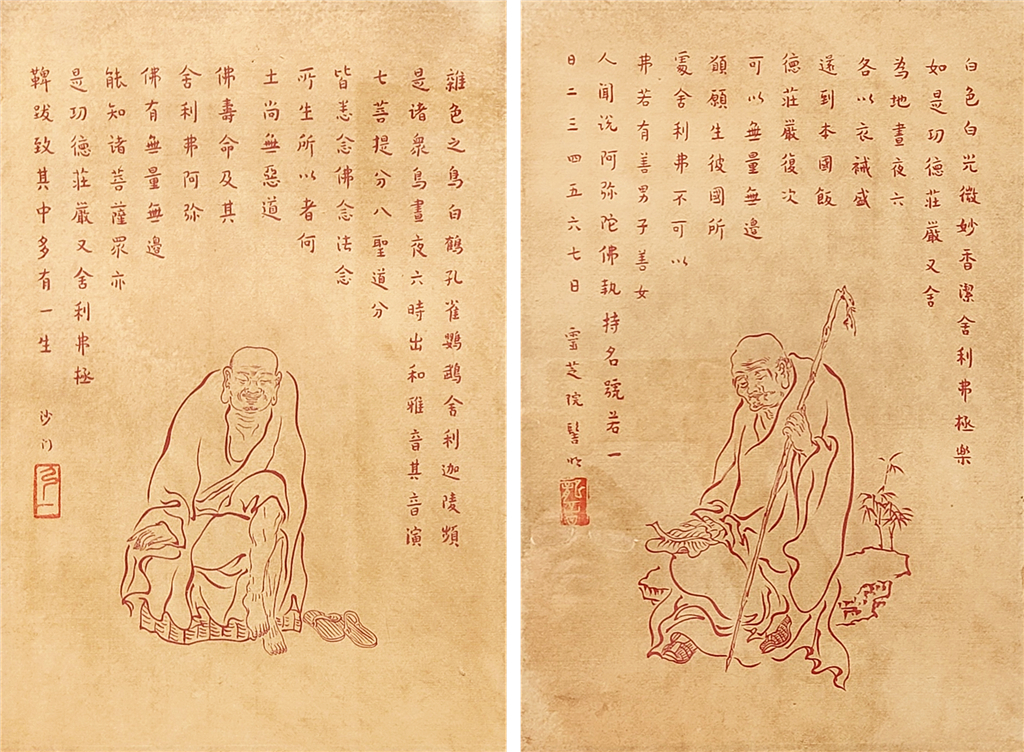 白色白光微妙香潔舍利弗極樂
如是功德莊嚴又舍
為地晝夜六
各以衣裓盛
還到本國飯
德莊嚴復次
可以無量無邊
願生彼國所
處舍利弗不可以
弗若有善男子善女
人聞説阿弥陀佛執持名號若一
日二三四五六七日
靈芝院
雜色之鳥白鶴孔雀鸚鵡舍利迦陵頻
是诸衆鳥晝夜六時出和雅音其音演
七菩提分八聖道分
皆悉念佛念法念
所生所以者何
土尚無惡道
佛壽命及其
舍利弗阿弥
佛有無量無邊
能知诸菩薩眾亦
是功德莊嚴又舍利弗極
鞞跋致其中多有一生
沙门
弘一